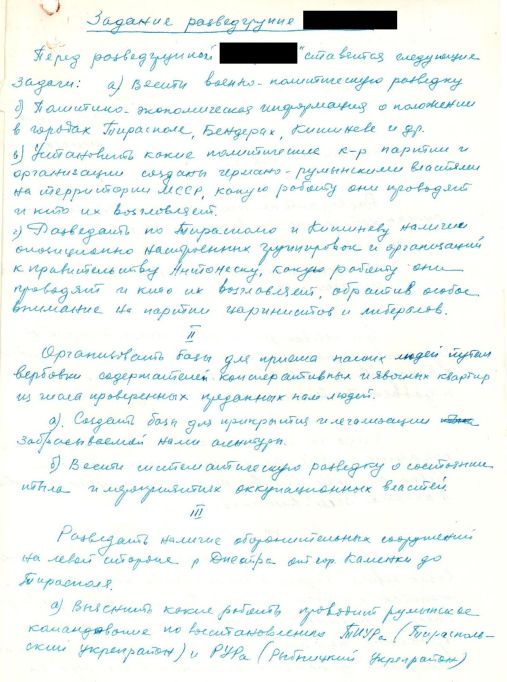 Задание разведгруппе
Перед разведгруппой " ставится следующие
задачи: а) Вести военно-политическую разведку
б) Политико-экономическая информация о положении
в городах Тирасполе, Бендерах, Кишиневе и др.
в) Установить какие политические к-р партии и
организации созданы германо-румынскими властями
на территории МССР, какую работу они проводят
и кто их возглавляет.
г) Разведать по Тирасполю и Кишиневу наличие
оппозиционно настроенных группировок и организаций
к правительству Антонеску, какую работу они
проводят и кто их возглавляет, обратив особое
внимание на партии царинистов и либералов.
II
Организовать базы для приема наших людей путем
вербовки содержателей конспиративных и явочных квартир
из числа проверенных преданных нам людей.
а). Создать базы для прикрытия и легализации
забрасываемой нами агентуры.
б) Вести систематическую разведку о состоянии
тыла и мероприятиях оккупационных властей
III
Разведать наличие оборонительных сооружений
на левой стороне р Днестра от гор. Каменки до
Тирасполя.
а) Выяснить какие работы проводит румынское
командование по восстановлению ТИУРа (Тирасполь-
ский укрепрайон) и РУРа (Рыбницкий укрепрайон)